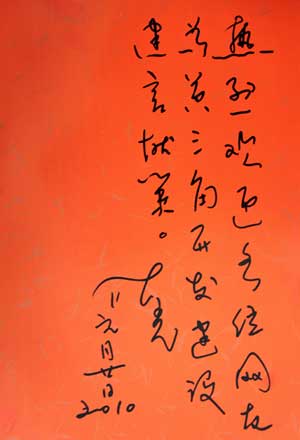 热烈欢迎各位网友
为黄三角开发建设
建言献策。
元月廿日
2010